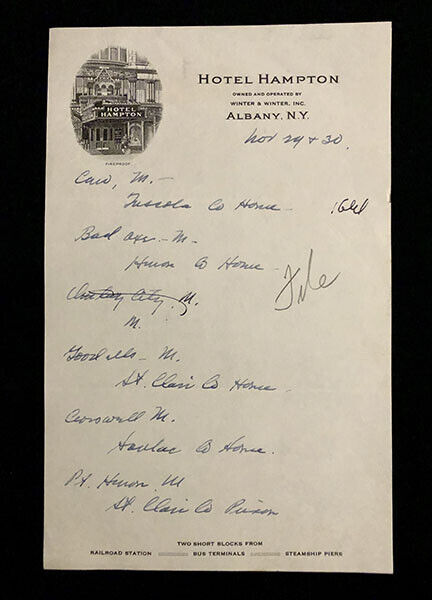 HOTEL HAMPTON
HOTEL HAMPTON
OWNED AND OPERATED BY
WINTER & WINTER, INC.
ALBANY, N.Y.
FIREPROOF
Nov 29 & 30.
Caro, M. —
Tuscola Co Home — 1661
Bad Axe - M. —
Huron Co Home —
File
City, M.
M.
Goodells - M.
St. Clair Co Home —
Croswell M.
Sanilac Co Home.
Pt. Huron M
St. Clair Co Prison
TWO SHORT BLOCKS FROM
RAILROAD STATION BUS TERMINALS STEAMSHIP PIERS